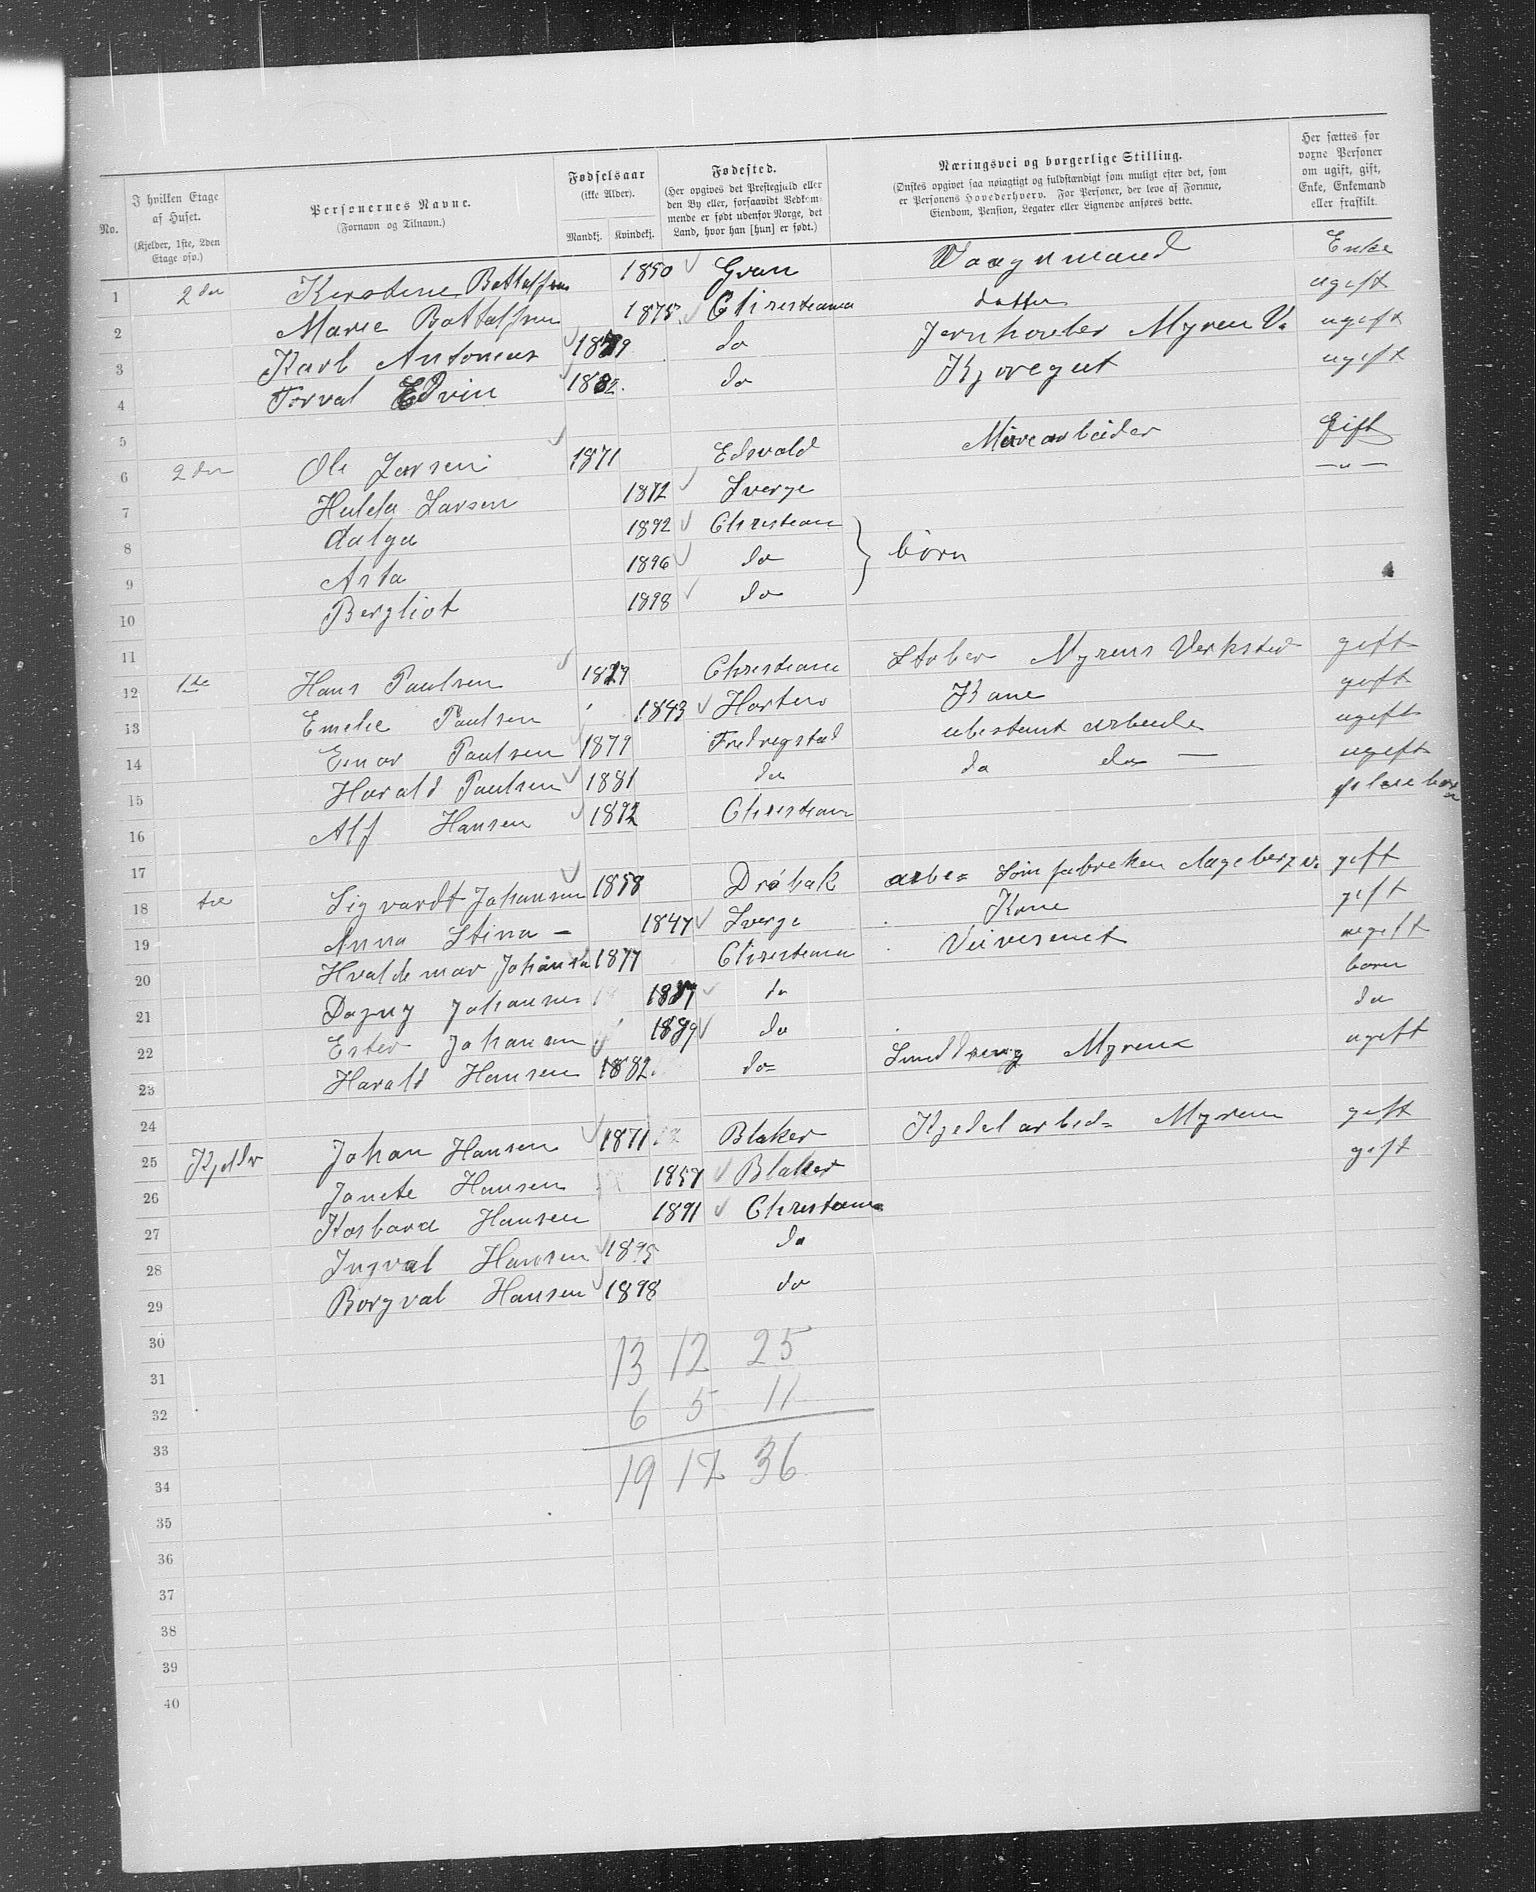 No. | I hvilken Etage af Huset. (Kjelder, 1ste, 2den Etage osv.) | Personernes Navne. (Fornavn og Tilnavn.) | Fødselsaar (ikke Alder). Mandkj. Kvindekj. | Fødested. (Her opgives det Prestegjæld eller den By eller, forsaavidt Vedkommende er født udenfor Norge, det Land, hvor han [hun] er født.) | Næringsvei og borgerlige Stilling. (Ønskes opgivet saa nøiagtigt og fuldstændigt som muligt efter det, som er Personens Hovederhverv. For Personer, der leve af Formue, Eiendom, Pension, Legater eller Lignende anføres dette.) | Her sættes for voxne Personer om ugift, gift, Enke, Enkemand eller fraskilt.
1 2den Kirstine 1850 Gran Vaagnmand Enke
2 Marie 1875 Christiania datter ugift
3 Karl Antonius 1879 do Jernhovler Myren V. ugift
4 Torval Edvin 1882. do ugift
5
6 2den Ole Larsen 1871 Edsvold Murearbeider Gift
7 Hulda Larsen 1872 Sverge — " —
8 1892 Christian
9 Asta 1896 do } børn
10 Bergliot 1898 do
11
12 1ste Hans Paulsen Christiania Støber Myrens Verksted gift
13 Emelie Paulsen 1843 Horten Kone gift
14 Einar Paulsen 1879 Fredrigstad ubestemt arbeide ugift
15 Harald Paulsen 1881 do do do — ugift
16 Alf Hansen 1892 Christian
17
18 Sigvardt Johansen 1858 Drøbak arbe= Sømfabreken gift
19 Anna Stina — 1847 Sverge Kone gift
20 Hvaldemar Johansen 1877 Christiania Veivesenet ugift
21 Dagny Johansen 1887 do børn
22 Ester Johansen 1889 do do
23 Harald Hansen 1882. do= Smeddreng Myrens ugift
24
25 Kjelder Johan Hansen 1871 Blaker Kjedelarbed= Myren gift
26 Hansen 1857 Blaker gift
27 Hansen 1891 Christiania
28 Ingval Hansen 1895 do
29 Borgval Hansen 1898 do
30 13 12 25
31
32 6 5 11
33
34 19 17 36
35
36
37
38
39
40